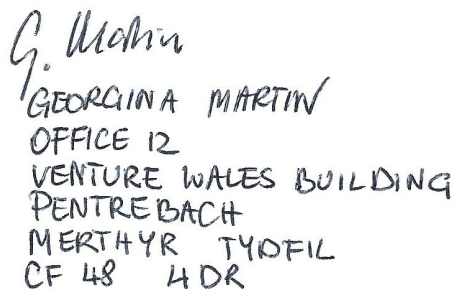 G. Martin
GEORGINA MARTIN
OFFICE 12
VENTURE WALES BUILDING
PENTREBACH
MERTHYR TYDFIL
CF 48 4DR